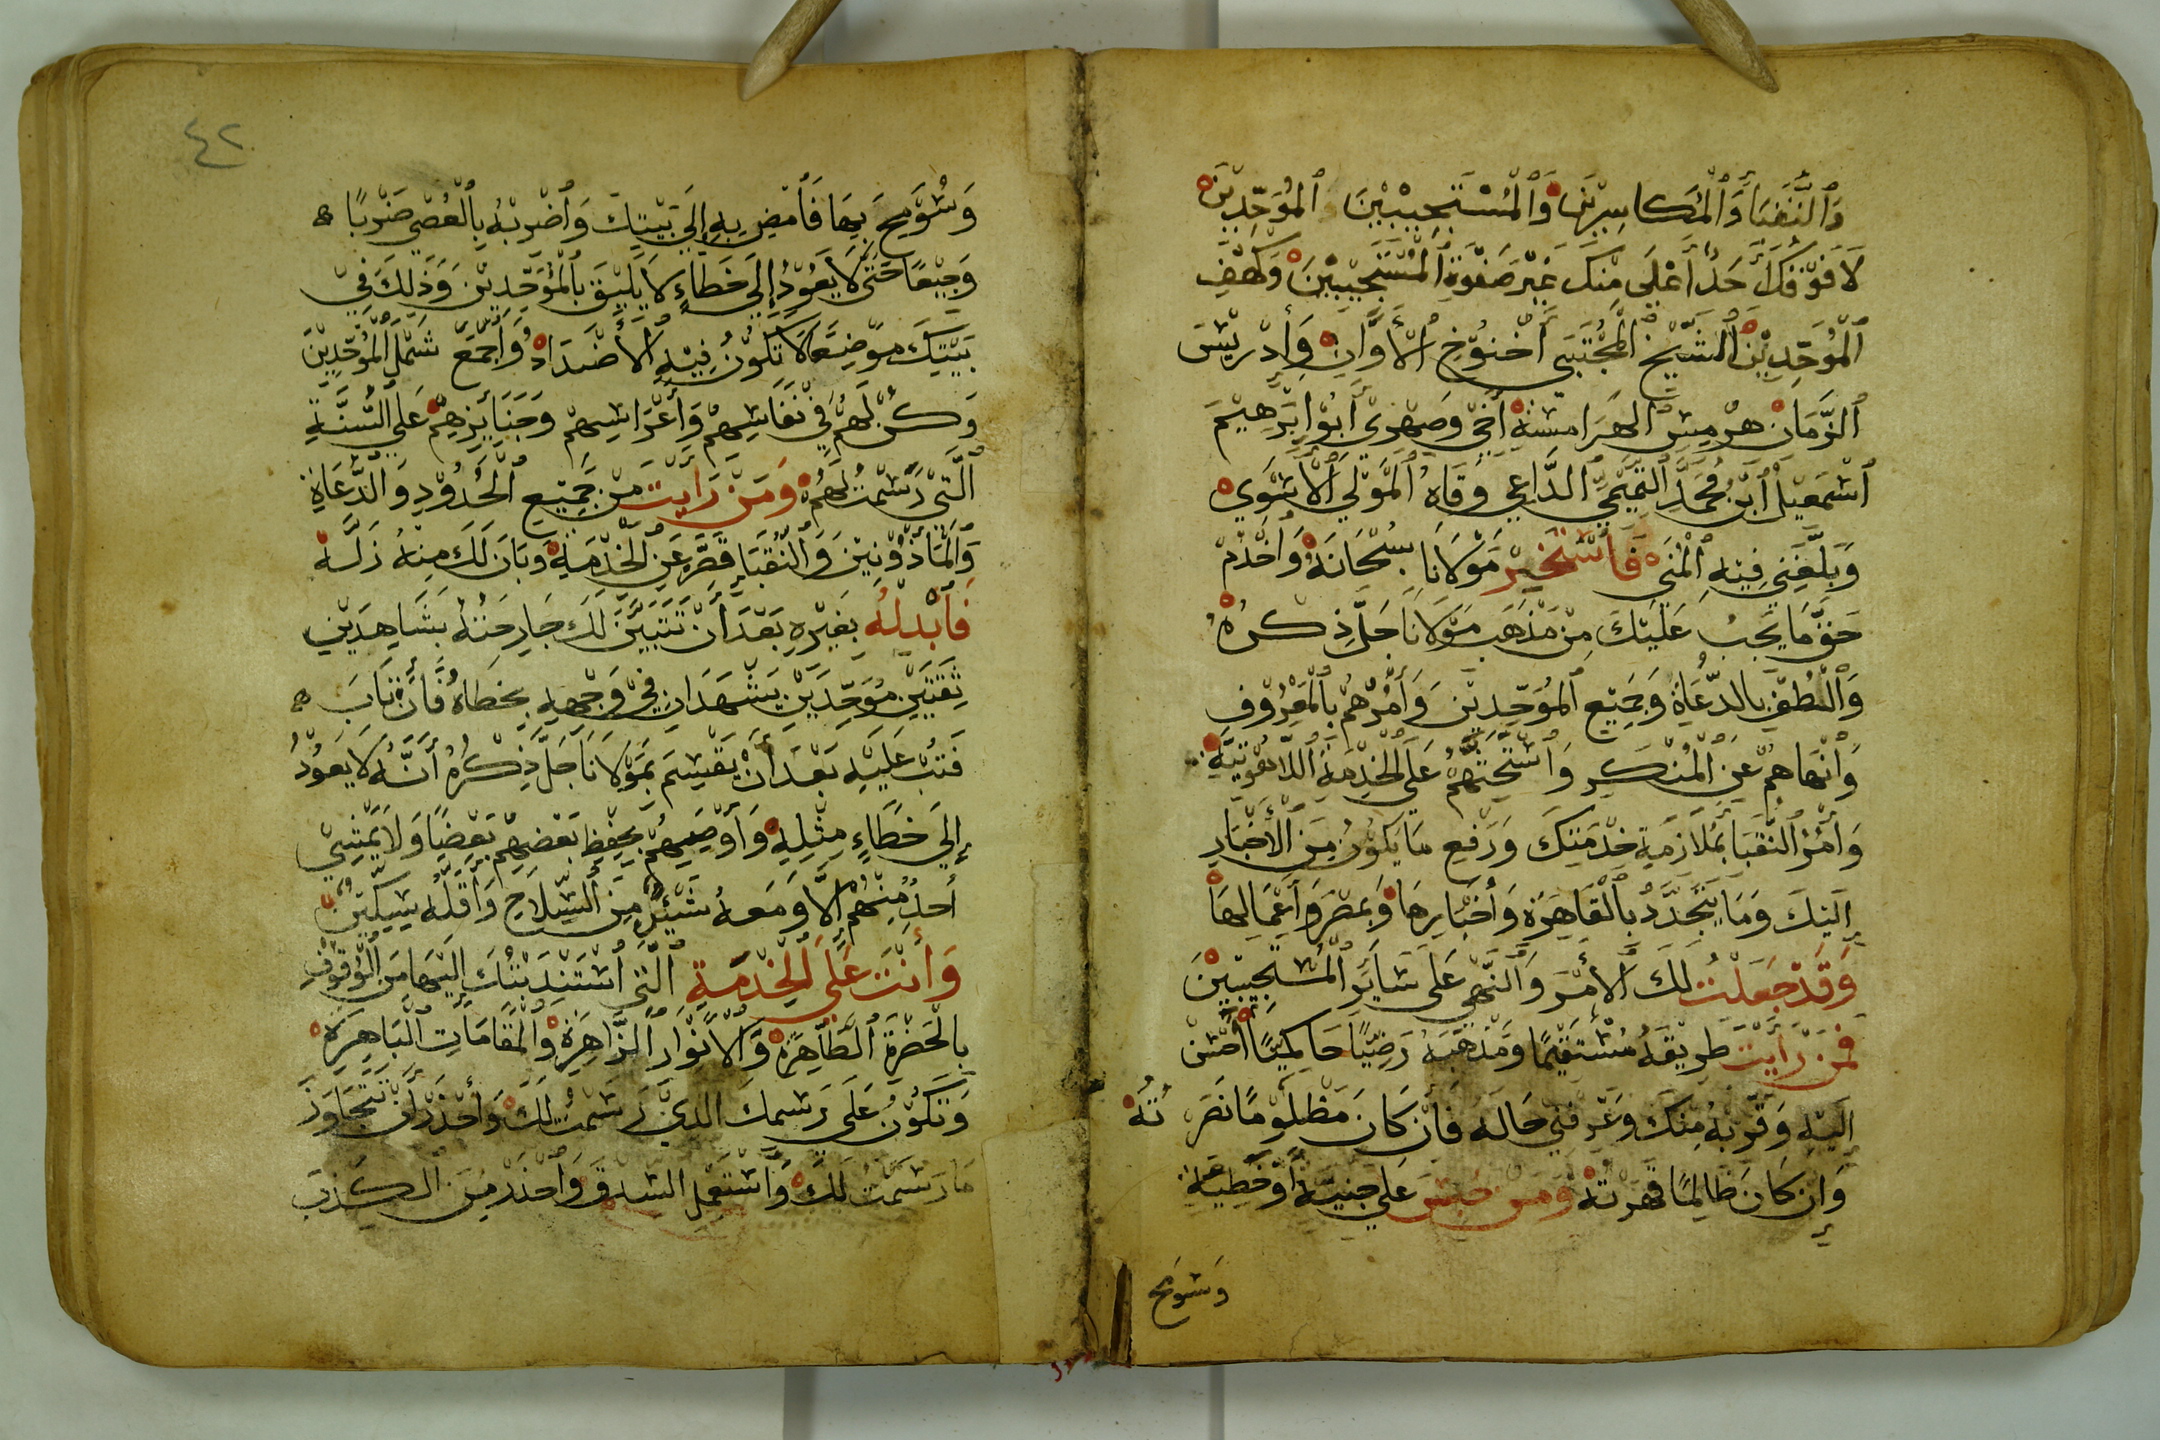 وَٱلنُّقَبَا وَٱلْمُكَاسِرِيْنَ وَٱلْمُسْتَجِيْبِيْنَ ٱلمُوَحِّدِيْنَ
لَا فَوْقَكَ حَدٌ أَعْلَى مِنْكَ غَيْرَ صَفْوَةِ ٱلْمُسْتَجِيْبِيْنَ وَكَهْفِ
ٱلْمُوَحِّدِيْنَ ٱلشَّيْخِ ٱلْمُجْتَبَى أَخْنُوْخِ ٱلْأَوَانِ وَأَدْرِيْسَ
ٱلزَّمَانِ هِرْمِسِ ٱلهَرَامِسَةِ أَخِيْ وَصِهْرِيْ أَبُوْ إِبْرَهِيْمَ
ٱسْمَعِيْلَ ٱبْنِ مُحَمَّدٍ ٱلتَّمِيْمِيِّ ٱلدَّاعِي وَقَاهُ ٱلْمَوْلَى ٱلْأَسْوَى
وَبَلَّغَنِي فِيْهِ ٱلْمُنَى فَٱسْتَخِيْرْ مَوْلَانَا سُبْحَانَهُ وَٱخْدُمْ
حَقَّ مَا يَجِبُ عَلَيْكَ مِنْ مَذْهَبِ مَوْلَانَا جَلَّ ذِكْرُهُ
وَٱلْطُفْ بِالدُّعَاةِ وَجَمِيْعِ ٱلمُوَحِّدِيْنَ وَأْمُرْهُمْ بِٱلْمَعْرُوْفِ
وَٱنْهَاهُمْ عَنِ ٱلْمُنْكَرِ وَٱسْتَحِثَّهُمْ عَلَى ٱلْخِدْمَةِ ٱللَّاهُوْتِيَّةِ
وَأْمُرْ ٱلنُّقَبَا بِمُلَازَمَةِ خِدْمَتِكَ وَرَفْعِ مَا يَكُوْنُ مِنَ ٱلْأَخْبَارِ
إِلَيْكَ وَمَا يَتَجَدَّدُ بِٱلْقَاهِرَةِ وَأَخْبَارِهَا وَبِمِصْرَ وَأَعْمَالِهَا
وَقَدْ جَعَلْتُ لَكَ ٱلْأَمْرَ وَٱلنَّهْيَ عَلَى سَايِرِ ٱلْمُسْتَجِيْبِيْنَ
فَمَنْ رَأَيْتَ طَرِيْقَهُ مُسْتَقِيْمًا وَمَذْهَبَهُ رَضِيًّا حَاكِمِيًّا أَحْسِنْ
إِلَيْهِ وَقَرِّبْهُ مِنْكَ وَعَرِّفْنِي حَالَهُ فَإِنْ كَانَ مَظْلُوْمًا نَصَرْتُهُ
وَإِنْ كَانَ ظَالِمًا قَهَرْتُهُ وَمَن حُبِسَ عَلَى جَنِيَةٍ أَوْ خَطِيَةٍ
وَسُومِحَ
٤٢
وَسُوْمِحَ بِهَا فَٱمْضِ بِهِ إِلَى بَيْتِكَ وَٱضْرِبْهُ بِٱلْعُصِيِّ ضَرْبًا
وَجِيْعًا حَتَّى لَا يَعُوْدُ إِلَى خَطَاءٍ لَا يَلِيْقَ بِٱلْمُوَحِّدِيْنَ وَذٰلِكَ فِيْ
بَيْتِكَ مَوْضِعًا لَا تَكُوْنُ فِيْهِ ٱلْأَضْدَادُ وَٱجْمَعْ شَمْلَ ٱلْمُوَحِّدِيْنَ
وَكُنْ لَهُمْ فِيْ نَفَاسِهِمْ وَأَعْرَاسِهِمْ وَجَنَايِزِهِمْ عَلَى ٱلسُّنَّةِ
ٱلَّتِيْ رَسَمْتُ لَهُمْ وَمَنْ رَايْتَ مِنْ جَمِيْعِ ٱلْحُدُوْدِ وَٱلدُّعَاةِ
وَٱلْمَأْذُوْنِيْنَ وَٱلْنُّقَبَا قَصَّرَ عَنِ ٱلْخِدْمَةِ وَبَانَ لَكَ مِنْهُ زَلَّةً
فَٱبْدِلْهُ بِغَيْرِهِ بَعْدَ أَنْ تَتَبَيَّنَ لَكَ جَارِحَتُهُ بِشَاهِدَيْنِ
ثِقَتَيْنِ مُوَحِّدَيْنِ يَشْهَدَانِ فِيْ وَجْهِهِ بِخَطَاهُ فَإِنْ تَابَ
فَتُبْ عَلَيْهِ بَعْدَ أَنْ يُقْسِمَ بِمَوْلَانَا جَلَّ ذِكْرُهُ أَنَّهُ لَا يَعُوْدُ
إِلَى خَطَاءٍ مِثْلِهِ وَأَوْصِيْهُمْ بِحِفْظِ بَعْضِهِمْ بَعْضًا وَلَا يَمْشِيْ
أَحَدٌ مِنْهُمْ إِلَّا وَمَعَهُ شَيْئٌ مِنَ ٱلسِّلَاحِ وَأَقَلُّهُ سِكِّيْنٌ
وَأَنْتَ عَلَى ٱلْخِدْمَةِ ٱلَّتِي ٱسْتَنْدَبْتُكَ إِلَيْهَا مِنَ ٱلْوُقُوْفِ
بِالْحَضْرَةِ ٱلطَّاهِرَةِ وَٱلْأَنْوَارِ ٱلزَّاهِرَةِ وَٱلْمَقَامَاتِ ٱلْبَاهِرَةِ
وَتَكُوْنُ عَلَى رَسْمِكَ ٱلَّذِيْ رَسَمْتُ لَكَ وَٱحْذَرْ أَنْ تَتَجَاوَزَ
مَا رَسَمْتُ لَكَ وَٱسْتَعْمِلِ ٱلسِّدْقَ وَٱحْذَرْ مِنَ ٱلْكَذِبِ